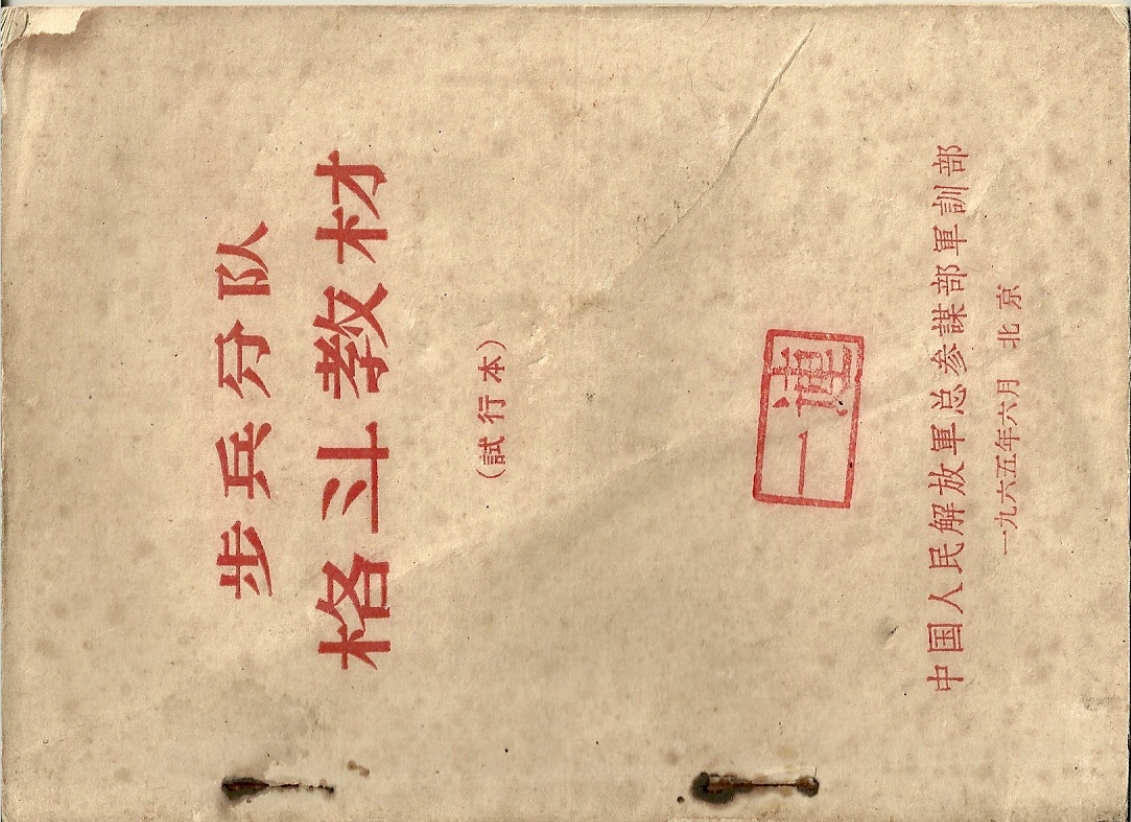 步兵分队
格斗教材
（試行本）
一連
中国人民解放軍总参謀部軍訓部
一九六五年六月 北京